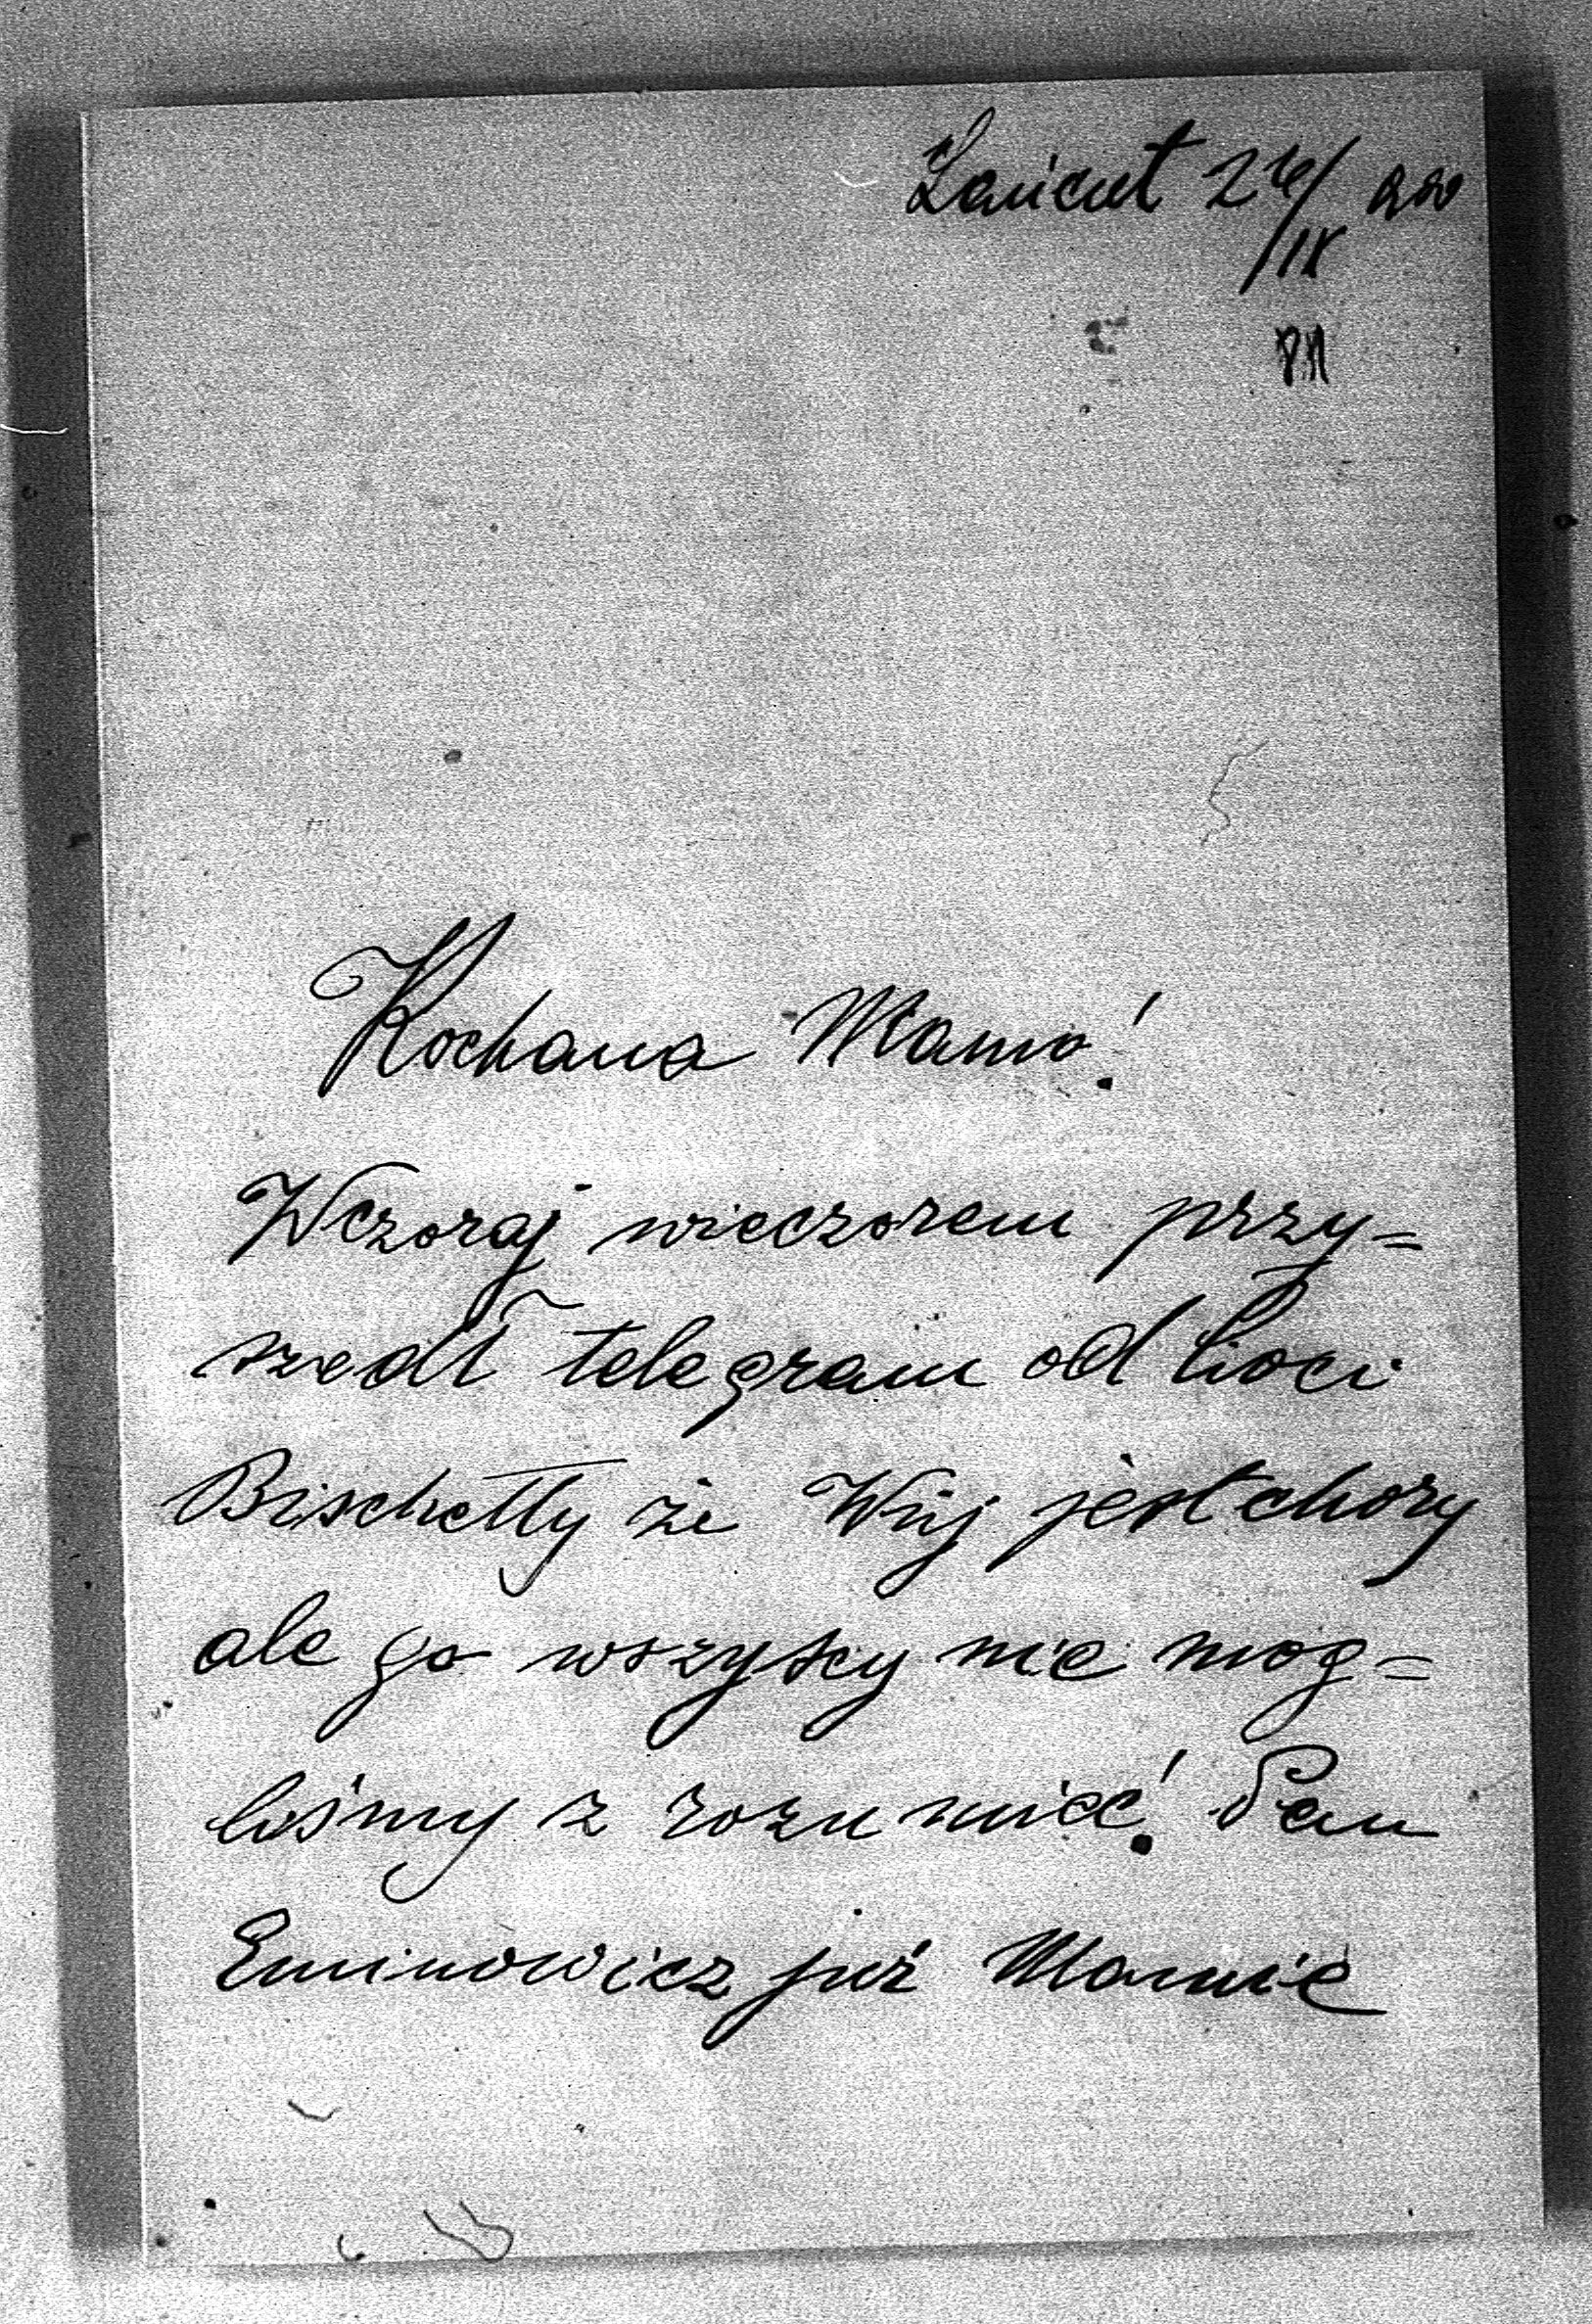 Łańcut 26/IX
Kochana Mamo!
Wczoraj wieczorem przy=
szedł telegram od Cioci
Bischetty że Wuj jest chory
ale go wszyscy nie mog=
liśmy z rozumieć! Pan
Eminowicz już Mamie